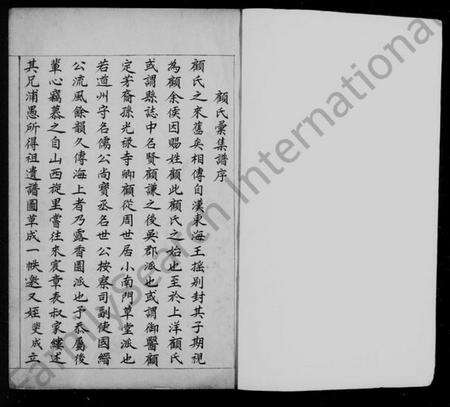 顧氏彙集譜序
顧氏之來舊矣相傳自漢東海王摇别封其子期視
為顧余侯因賜姓顧此顧氏之始也至於上洋顧氏
或謂縣誌中名賢顧謙之後吳郡派也或謂御醫顧
定芳裔孫光禄寺卿顧從周世居小南門草堂派也
若道州守名儒公尚寶丞名世公按察司副使國縉
公流風餘韻久傳海上者乃露香園派也予忝屬後
輩心竊慕之自山西旋里嘗往來处章表叔家縷述
其兄浦愚所得祖遺譜圖草成一帙邀又姪斐成立
FamilySearch International